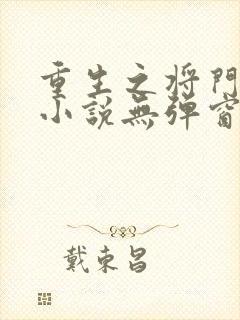 重生之将門
小説無彈窗
戴東昌